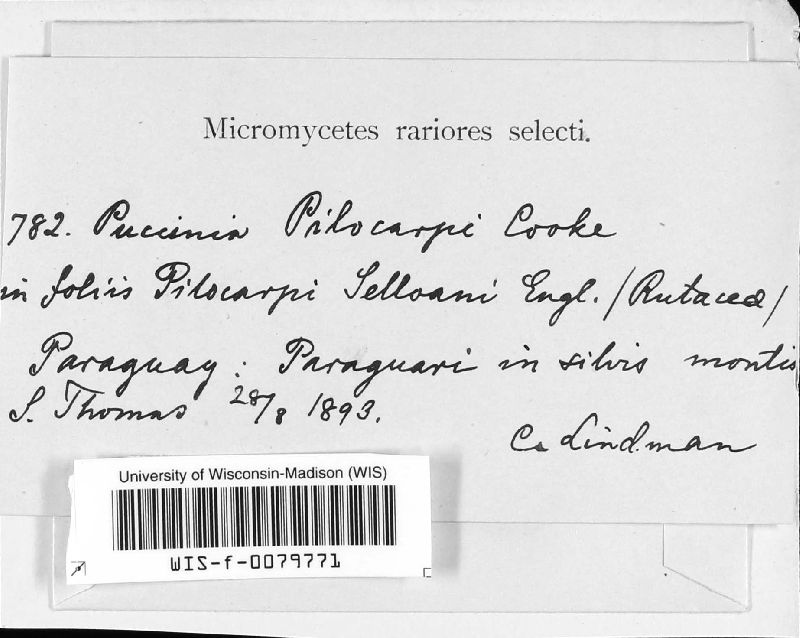 Micromycetes rariores selecti.
782. Puccinia Pilocarpi Cooke
in foliis Pilocarpi Selloani Engl. /Rutaceæ/
Paraguay: Paraguari in silvis montis
S. Thomas 28/8 1893.
C. Lindman
University of Wisconsin-Madison (WIS)
WIS-f-0079771